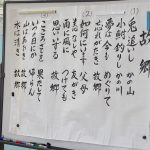 故郷
(1)
兎追いし かの山
小鮒釣りし かの川
夢は今も めぐりて
忘れがたき 故郷
(2)
如何にいます 父母
恙なしや 友がき
雨に風に つけても
思いいずる 故郷
(3)
こころざしを 果たして
いつの日にか 帰らん
山はあおき 故郷
水は清き 故郷